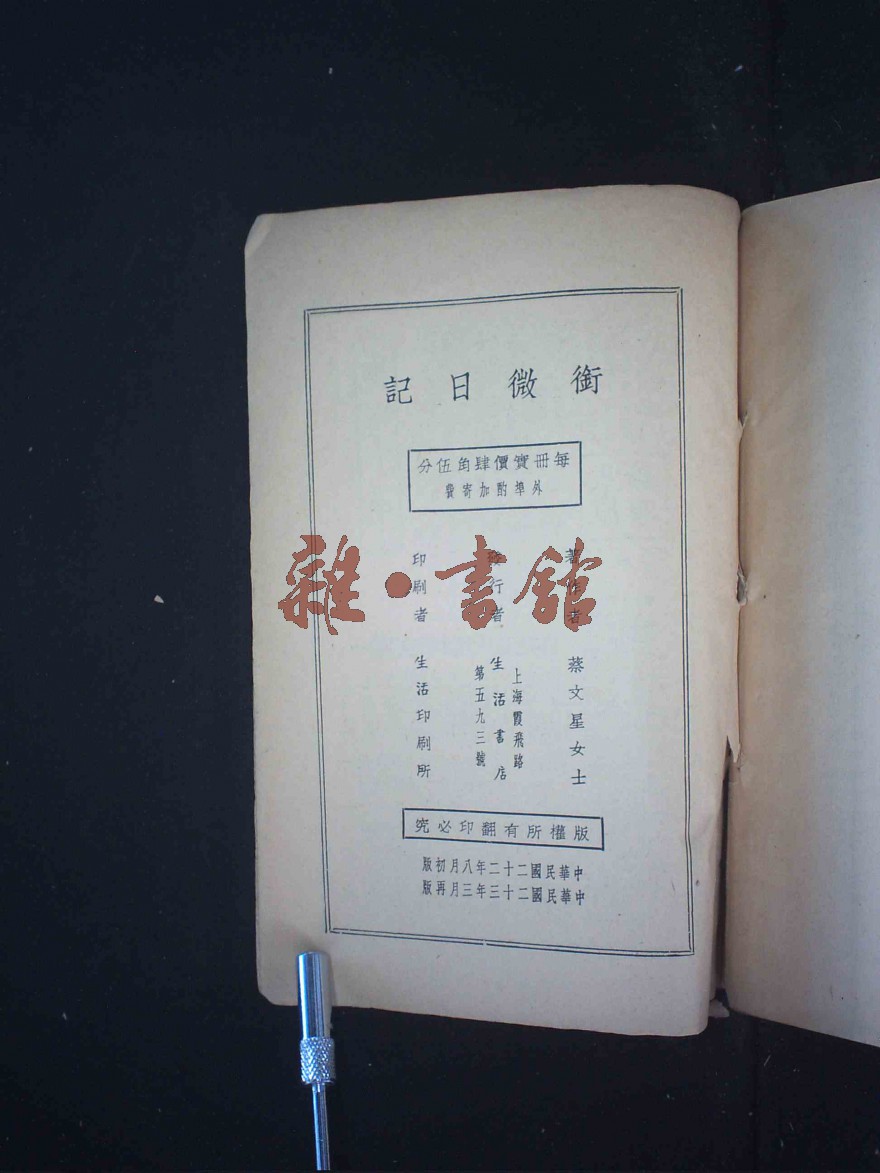 銜微日記
每冊實價肆角伍分
外埠酌加寄費
著作者 蔡文星女士
發行者 生活書店
上海霞飛路
第五九三號
印刷者 生活印刷所
版權所有翻印必究
中華民國二十二年八月初版
中華民國二十三年三月再版
雜·書館